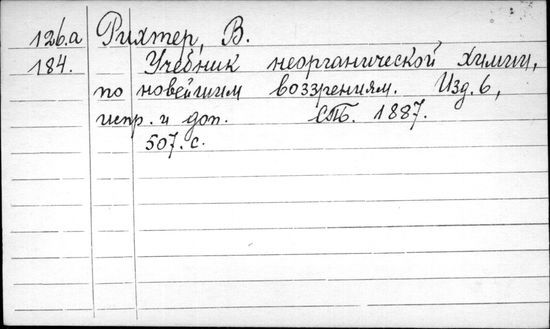 126.а Рихтер, В.
184. Учебник неорганической химии,
по новейшим воззрениям. Изд. 6,
испр. и доп. СПБ. 1887.
507. с.